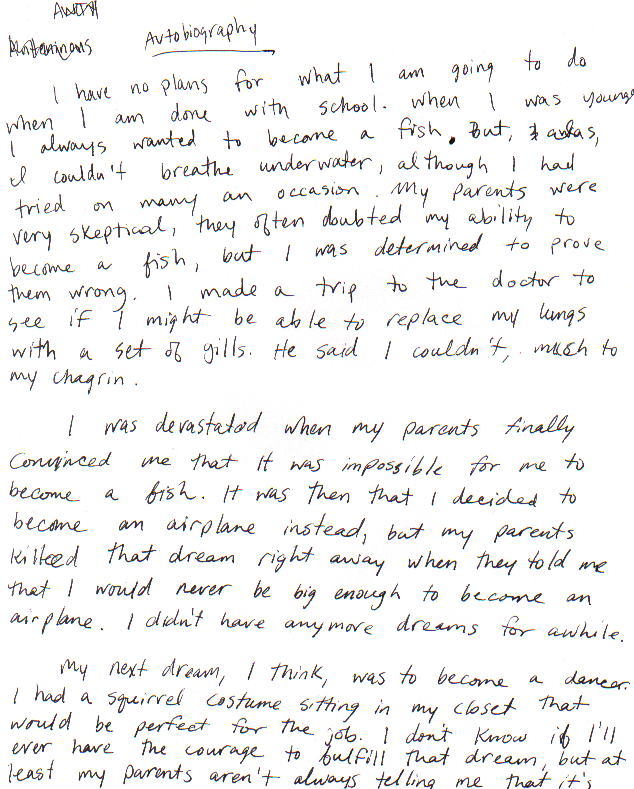 Autobiography
I have no plans for what I am going to do
when I am done with school. When I was younger
I always wanted to become a fish. But, alas,
I couldn't breathe underwater, although I had
tried on many an occasion. My parents were
very skeptical, they often doubted my ability to
become a fish, but I was determined to prove
them wrong. I made a trip to the doctor to
see if I might be able to replace my lungs
with a set of gills. He said I couldn't, much to
my chagrin.
I was devastated when my parents finally
convinced me that it was impossible for me to
become a fish. It was then that I decided to
become an airplane instead, but my parents
killed that dream right away when they told me
that I would never be big enough to become an
airplane. I didn't have anymore dreams for awhile.
My next dream, I think, was to become a dancer.
I had a squirrel costume sitting in my closet that
would be perfect for the job. I don't know if I'll
ever have the courage to fulfill that dream, but at
least my parents aren't always telling me that it's